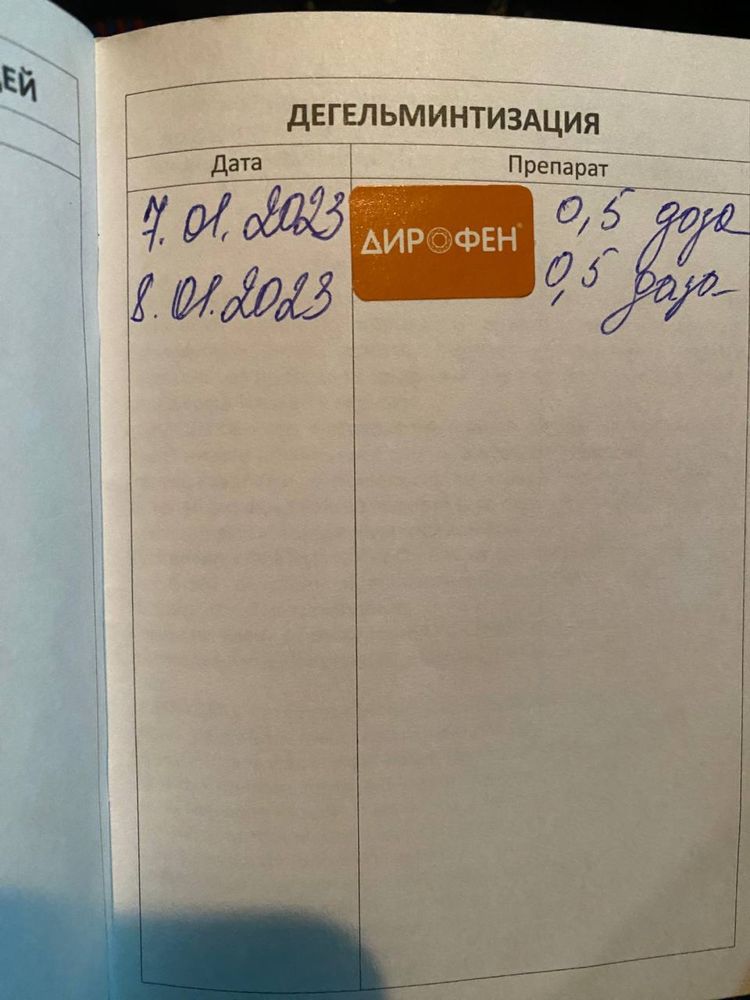 ЕЙ
ДЕГЕЛЬМИНТИЗАЦИЯ
Дата Препарат
7.01.2023 ДИРОФЕН® 0,5 доза
8.01.2023 0,5 доза